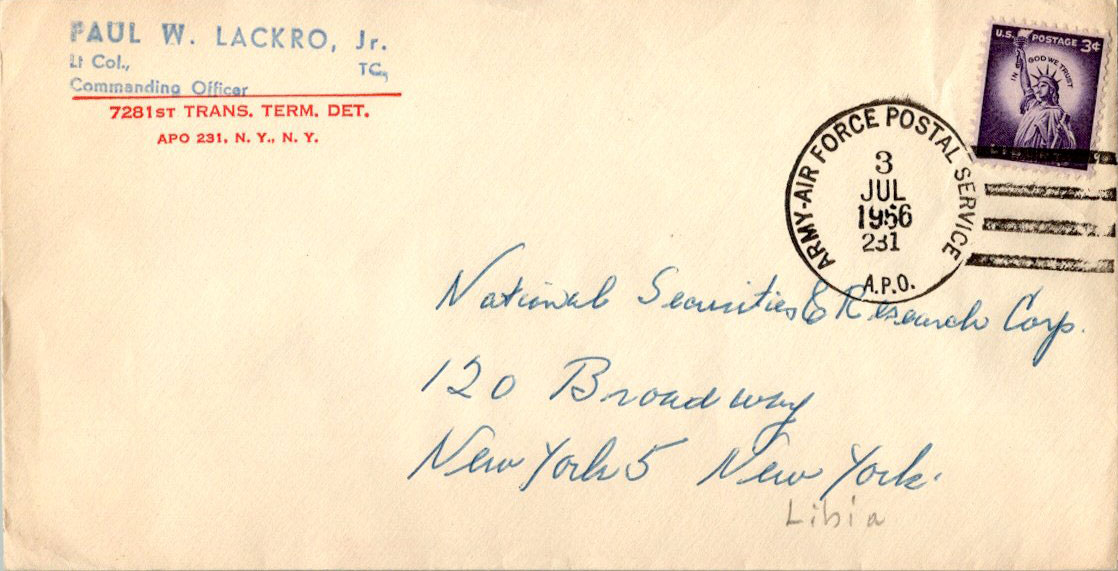 PAUL W. LACKRO, Jr.
Lt Col., TC,
Commanding Officer
7281ST TRANS. TERM. DET.
APO 231, N. Y., N. Y.
U.S. POSTAGE 3¢
IN GOD WE TRUST
ARMY-AIR FORCE POSTAL SERVICE
3
JUL
1956
231
A.P.O.
National Securities & Research Corp.
120 Broadway
New York 5 New York.
Libia